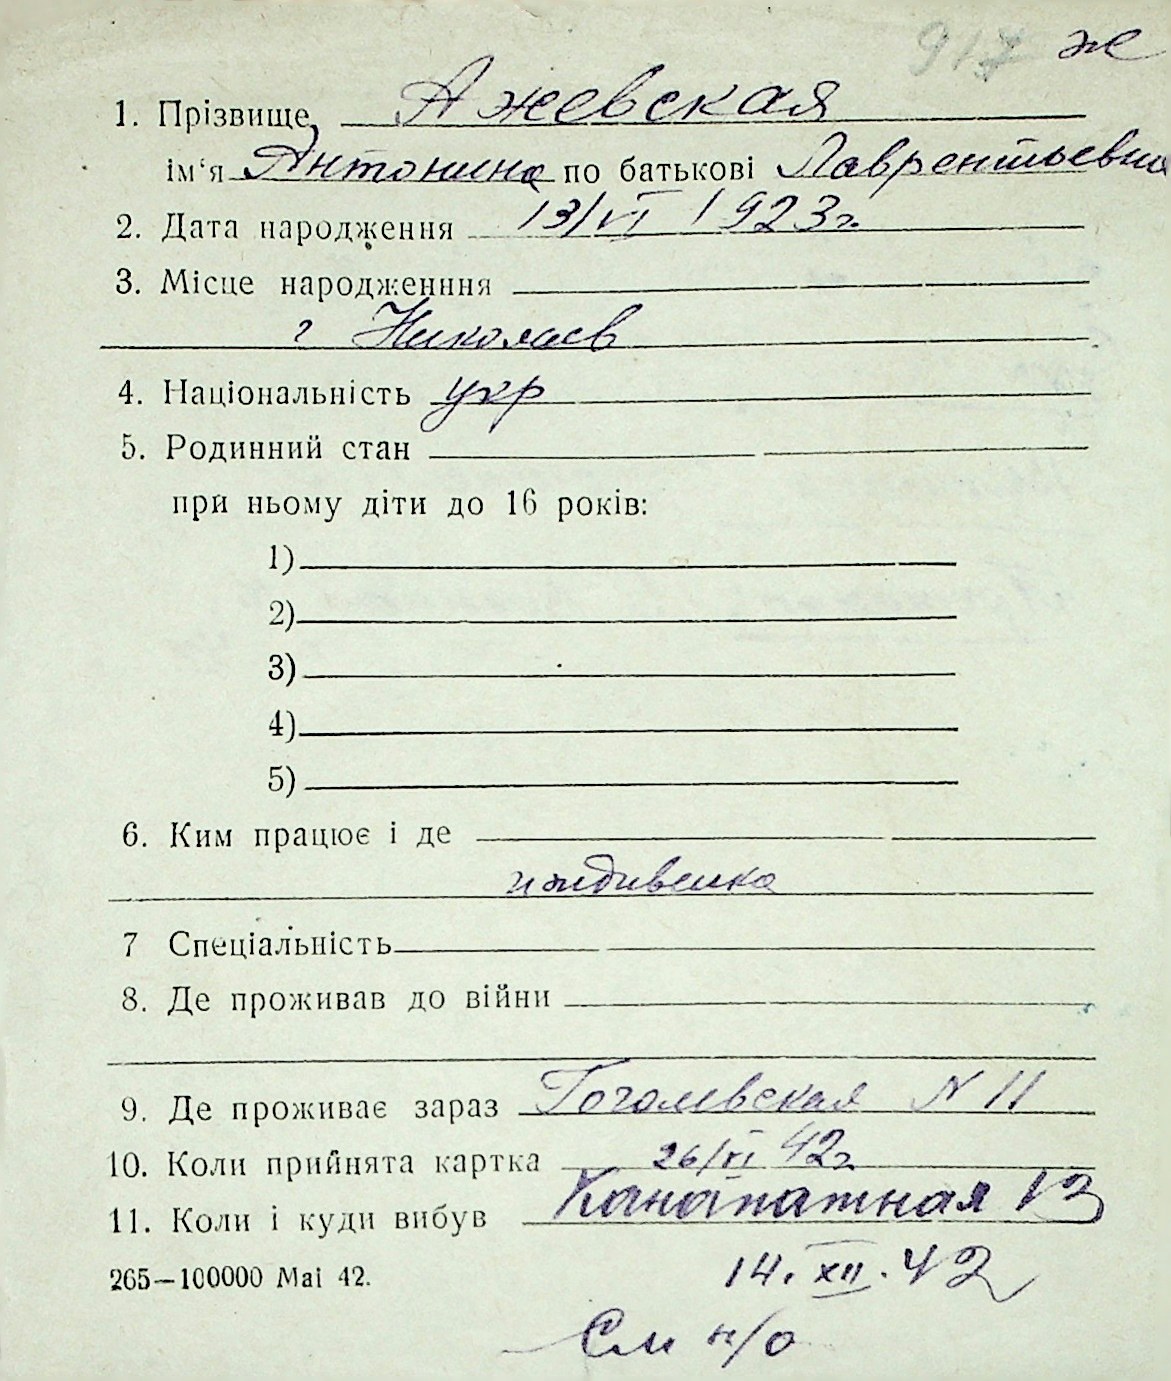 917 ж
1. Прізвище Ажевская
ім‘я Антонина по батькові Лаврентьевна
2. Дата народження 13/VI 1923г.
3. Місце народженння
г Николаев
4. Національність укр
5. Родинний стан
при ньому діти до 16 років:
1)
2)
3)
4)
5)
6. Ким працює і де
иждивенка
7 Спеціальність
8. Де проживав до війни
9. Де проживає зараз Гоголевская N 11
10. Коли прийнята картка 26/VI 42г
11. Коли і куди вибув Канатная 13
265—100000 Mai 42.
14. XII. 42
См н/о